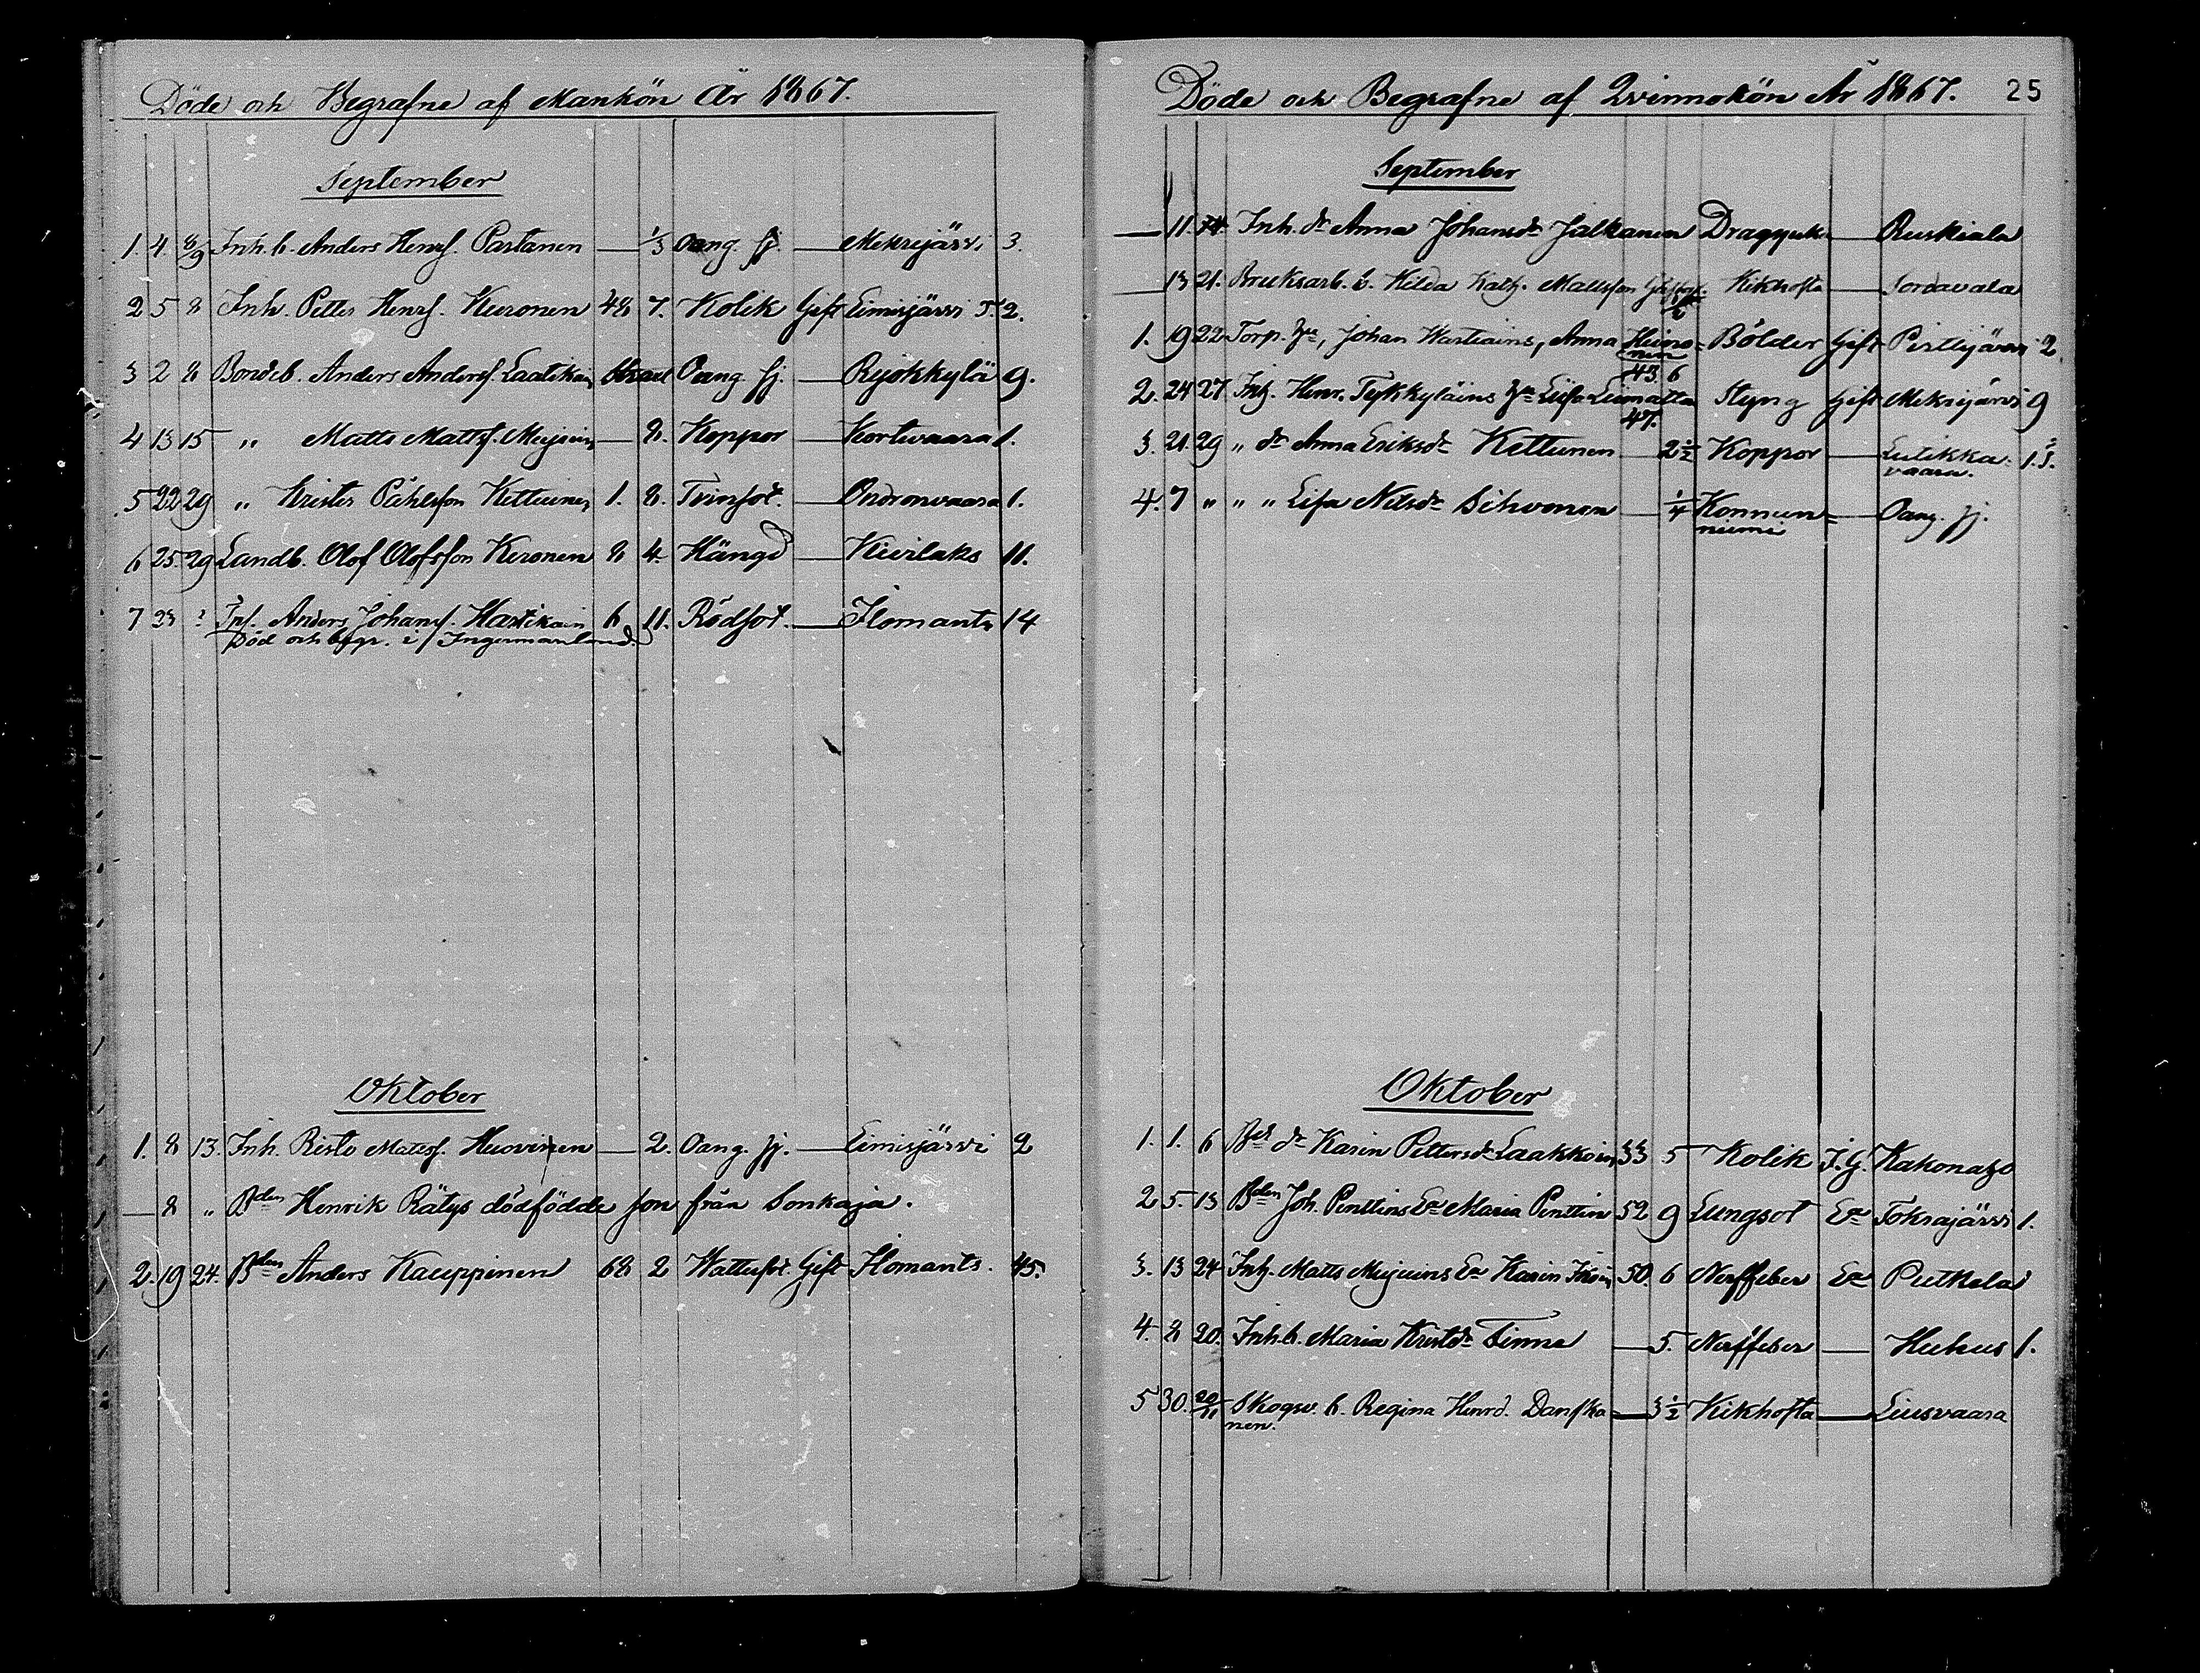 Döde och Begrafne af Mankön År 1867.
September
1. 4. 8/9 Inh. b. Anders Henrs. Partanen — 1/3 Oang. sj. — Mekrijärvi 3.
2 5 8 Inh. Petter Henrs. Kuronen 48 7. Kolik Gift Eimisjärvi 5. 2.
3 2 8 Bondeb. Anders Anders. Laatikain straxt Oang sj. — Ryökkylä 9.
4 13 15 „ Matts Matts. Mujuin — 8. Koppor — Kortevaara 1.
5 22 29 „ Krister Påhlsson Kettuinen 1. 8. Tvinsot. — Ondronvaara 1.
6 25. 29 Landb. Olof Olofsson Keronen 8 4. Hängd — Kivilaks 11.
7 23 ? Inh. Anders Johans. Hartikain 6 11. Rödsot. — Ilomants 14
Död och begr. i Ingermanland.
Oktober
1. 8 13. Inh. Risto Matts. Huovinen — 2. Oang. sj. — Eimisjärvi 2
— 8 „ Bden Henrik Rätys dödfödde son från Sonkaja.
2. 19 24. Bden Anders Kauppinen 68 2 Wattusot Gift Ilomants. 45.
Döde och Begrafne af Qvinnokön År 1867. 25
September
— 11. 14. Inh. dr Anna Johansdr Jalkanen Dragsjuka — Ruskiala
— 13 21. Bruksarb. b. Hilda Kath. Mattsson Kikhosta — Sordavala
1. 19 22 Torp. Hu, Johan Wartiains, Anna Heino- Bölder Gift Pirttijärvi 2.
nen
43 6
2. 24 27 Inh. Henr. Tykkyläins Hu Lisa Liimatta Styng Gift Mekrijärvi 9
47.
3. 21. 29 „ dr Anna Eriksdr Kettunen — 2 1/2 Koppor — Lutikka- 1.
vaara.
4. 7 „ „ „ Lisa Nilsdr Sihvonen — 1/4 Konnun- — Oang. sj.
niemi
Oktober
1. 1. 6 Bd dr Karin Pettersdr Laakkoin 33 5 Kolik I. G. Kakonaho
2 5. 13 Bden Joh. Penttins Ea Maria Penttin 52 9 Lungsot Ea Tokrajärvi 1.
3. 13 24 Inh. Matts Mujuins Ea Karin Ikoin 50. 6 Nerffeber Ea Putkela
4. 8 20. Inh. b. Maria Kristdr Timne — 5. Nerffeber — Huhus 1.
5 30. 20/11 Skogsv. b. Regina Henrd. Danska — 3 1/2 Kikhosta — Liusvaara
nen.